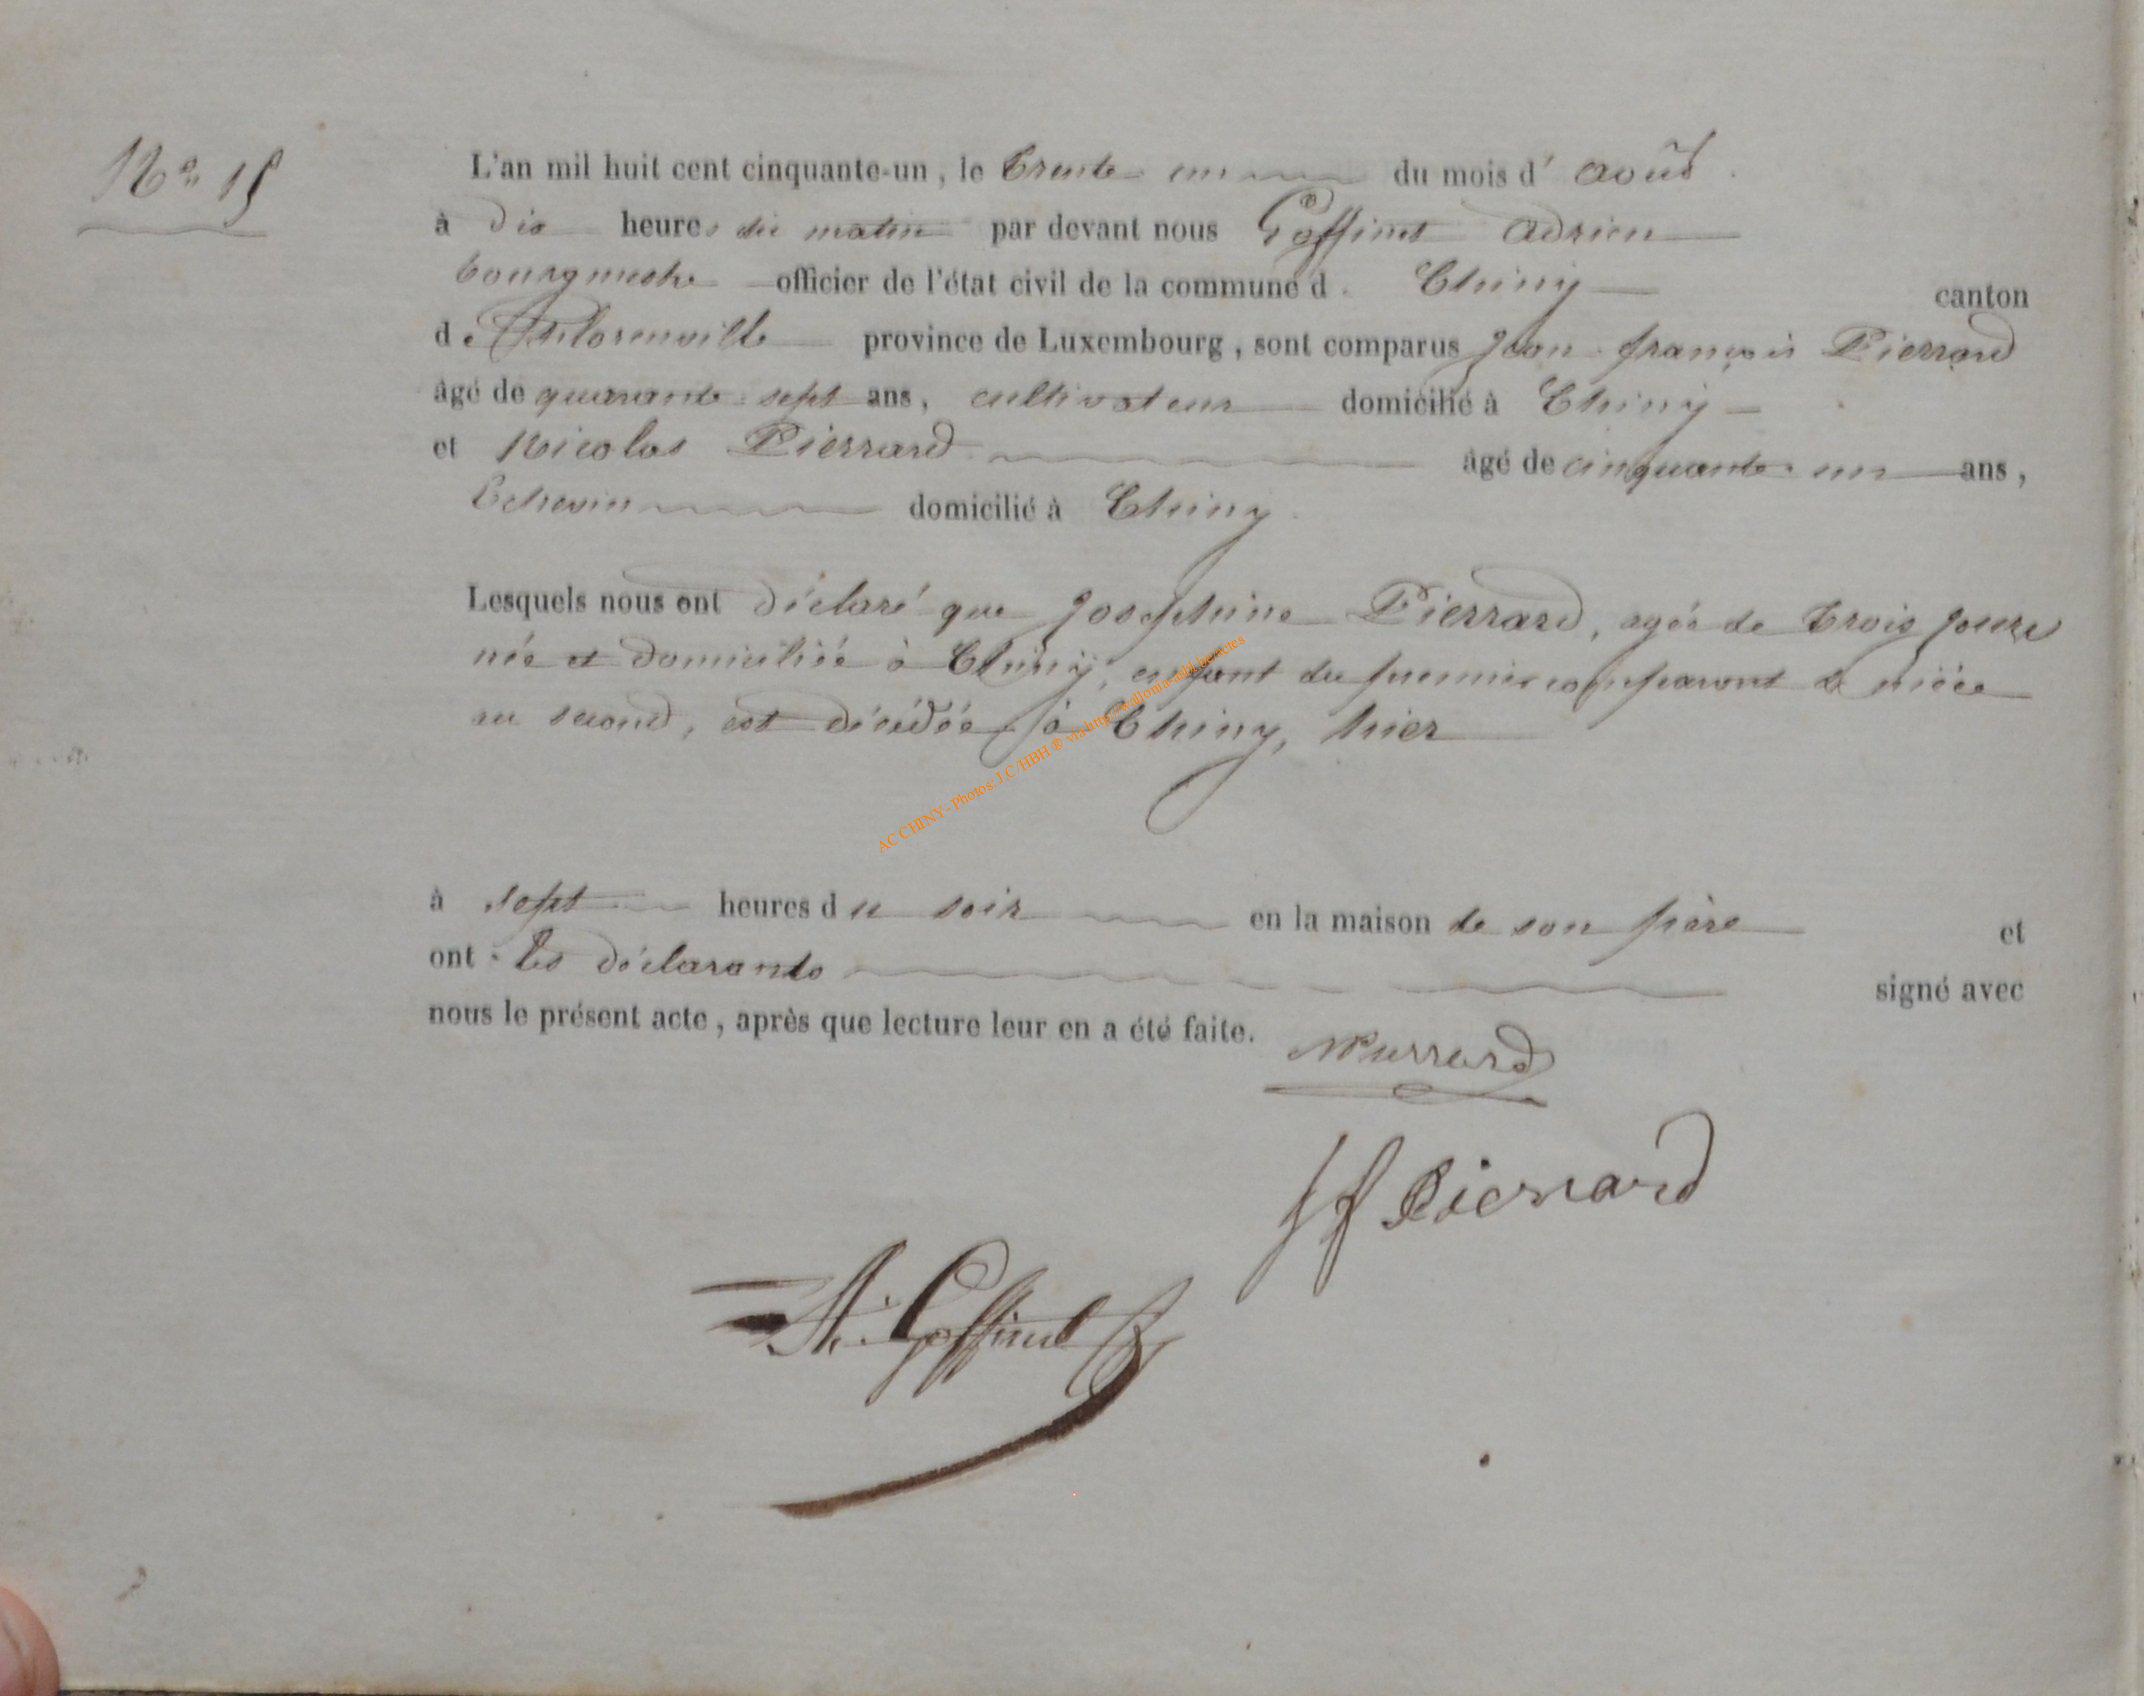 N° 15
L'an mil huit cent cinquante-un, le trente un du mois d' août
à dix heures du matin par devant nous Goffinet Adrien
bourgmestre officier de l'état civil de la commune d Chiny canton
de Florenville province de Luxembourg, sont comparus Jean françois Pierrard
âgé de quarante sept ans, cultivateur domicilié à Chiny
et Nicolas Pierrard âgé de cinquante un ans,
Echevin domicilié à Chiny.
Lesquels nous ont déclaré que Joséphine Pierrard, agée de trois jours
née et domiciliée à Chiny, enfant du premier comparant & nièce
au second, est décédée à Chiny, hier
AC CHINY - Photos: J.C/HBH ® via http://wallonia-asbl.be/actes
à sept heures du soir en la maison de son père et
ont les déclarants signé avec
nous le présent acte, après que lecture leur en a été faite.
NPierrard
Jf Pierrard
A. Goffinet